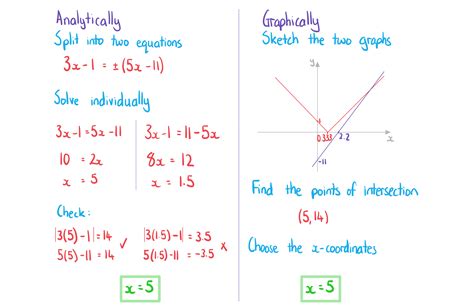 Analytically
Split into two equations
3x-1 = ±(5x-11)
Solve individually
3x-1=5x-11
10 = 2x
x = 5
3x-1=11-5x
8x = 12
x = 1.5
Check:
|3(5)-1|=14
5(5)-11=14 ✓
|3(1.5)-1|=3.5
5(1.5)-11=-3.5 ×
x=5
Graphically
Sketch the two graphs
y
1
0.333
2.2
x
-11
Find the points of intersection
(5,14)
Choose the x-coordinates
x=5